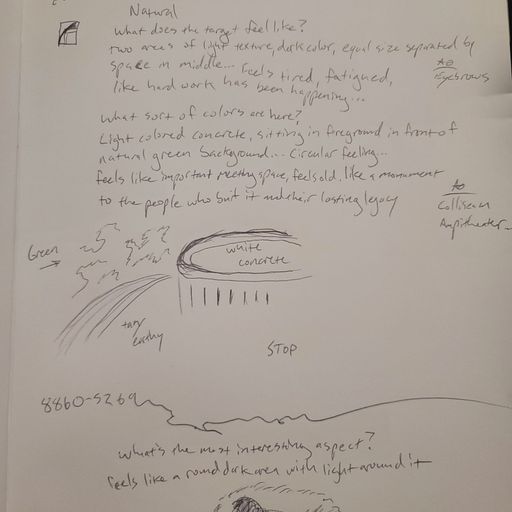 Natural
What does the target feel like?
two areas of light texture, dark color, equal size separated by
space in middle... Feels tired, fatigued,
like hard work has been happening...
AO
Eyebrows
What sort of colors are here?
Light colored concrete, sitting in foreground in front of
natural green background... Circular feeling...
feels like important meeting space, feels old, like a monument
to the people who buit it and their lasting legacy
AO
Coliseum
Ampitheater
Green
white
concrete
tan
earthy
STOP
8860-5269
what's the most interesting aspect?
feels like a round dark area with light around it